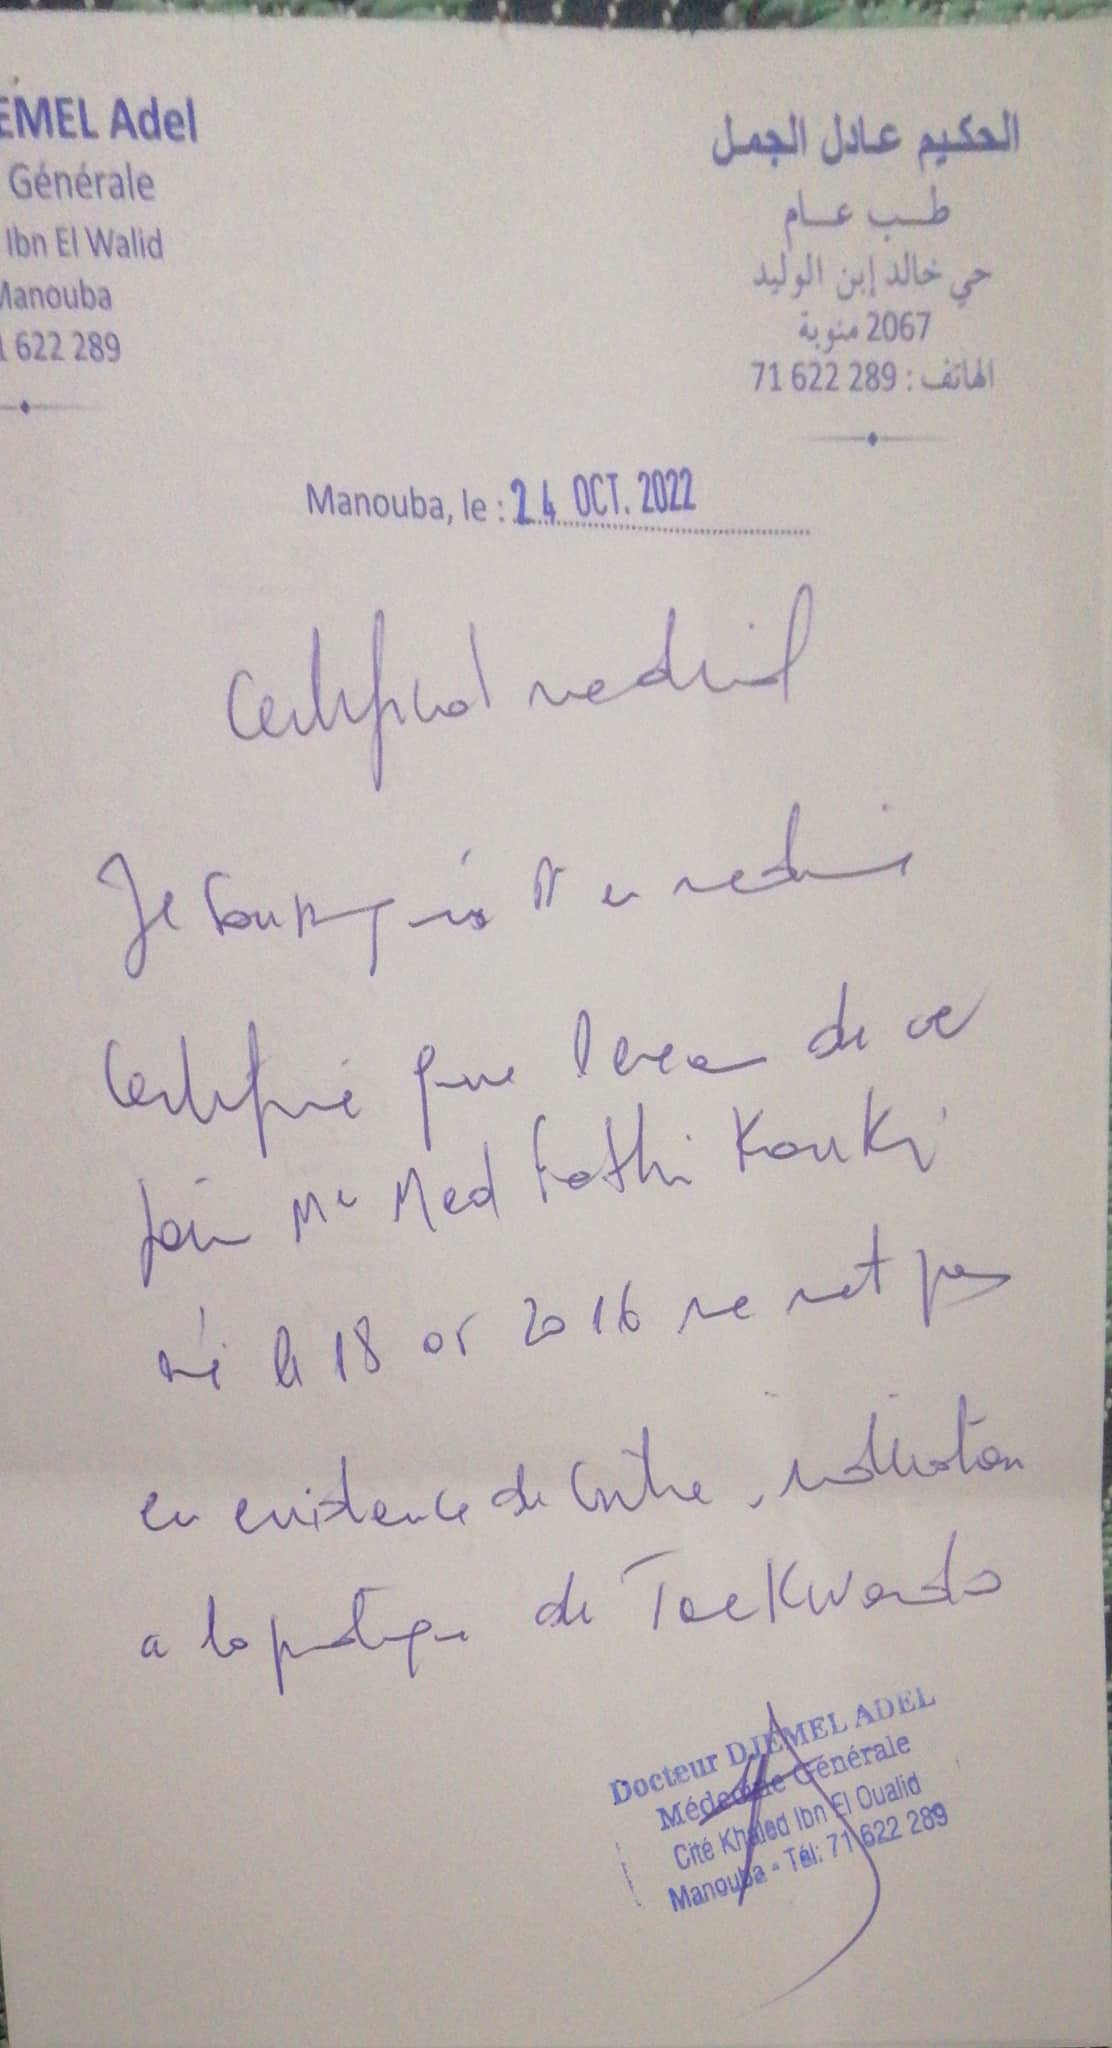 EMEL Adel
Générale
Ibn El Walid
Manouba
1 622 289
الحكيم عادل الجمل
طب عام
حي خالد إبن الوليد
2067 منوبة
الهاتف : 289 622 71
Manouba, le : 24 OCT. 2022
Certificat medical
Je soussigné Dr en medecine
Certifie que l'exam de ce
jour Mr Med Fathi Kouki
né le 18 05 2016 ne met pas
en evidence de contre indication
a la pratique de Taekwondo
Docteur DJEMEL ADEL
Médecine Générale
Cité Khaled Ibn El Oualid
Manouba - Tél: 71 622 289